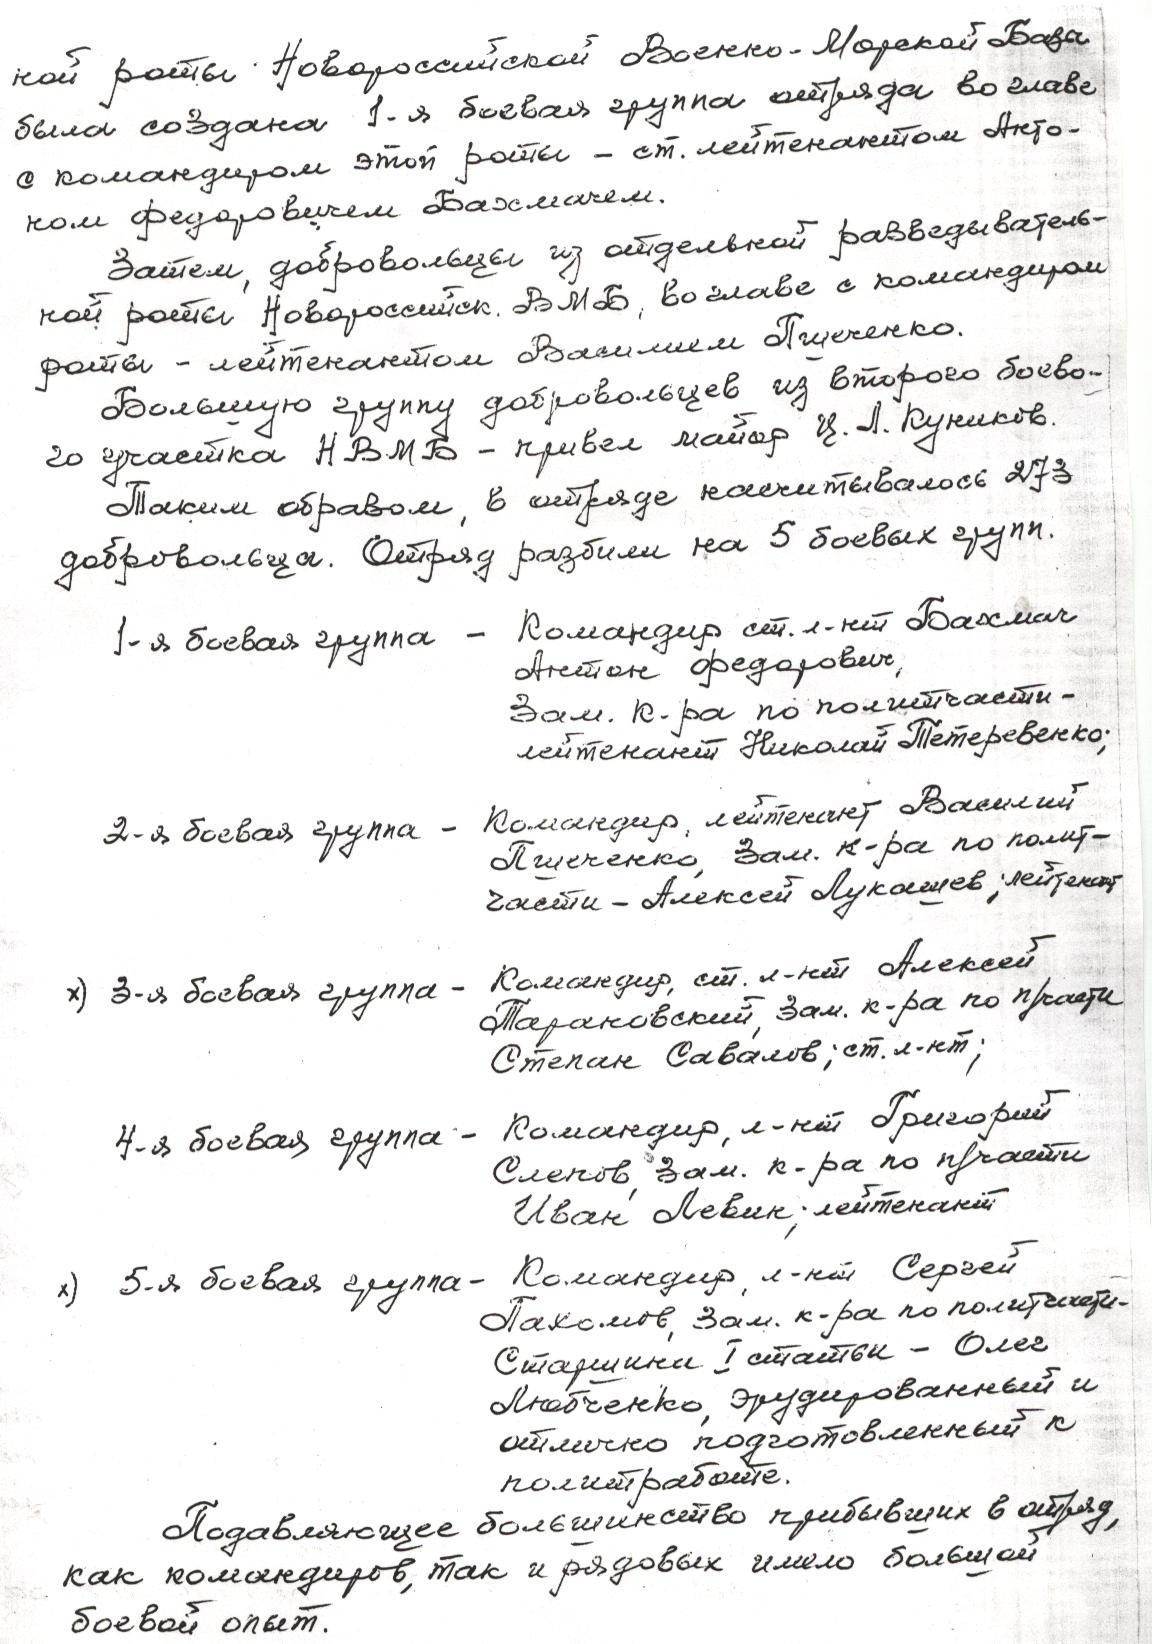 ной роты Новороссийской Военно-Морской Базы
была создана 1-я боевая группа отряда во главе
с командиром этой роты – ст. лейтенантом Анто-
ном Федоровичем Бахмачем.
Затем, добровольцы из отдельной разведыватель-
ной роты Новороссийск. ВМБ, во главе с командиром
роты – лейтенантом Василием Пшеченко.
Большую группу добровольцев из второго боево-
го участка НВМБ – привел майор Ц. Л. Куников.
Таким образом, в отряде насчитывалось 273
добровольца. Отряд разбили на 5 боевых групп.
1-я боевая группа – Командир ст. л-нт Бахмач
Антон Федорович,
Зам. к-ра по политчасти –
лейтенант Николай Тетеревенко;
2-я боевая группа – Командир, лейтенант Василий
Пшеченко, Зам. к-ра по полит-
части – Алексей Лукашев; лейтенант
х) 3-я боевая группа – Командир, ст. л-нт Алексей
Тарановский, Зам. к-ра по п/части
Степан Савалов; ст. л-нт;
4-я боевая группа – Командир, л-нт Григорий
Слепов, Зам. к-ра по п/части
Иван Левин; лейтенант
х) 5-я боевая группа – Командир, л-нт Сергей
Пахомов, Зам. к-ра по политчасти –
Старшини I статьи – Олег
Любченко, эрудированный и
отлично подготовленный к
политработе.
Подавляющее большинство прибывших в отряд,
как командиров, так и рядовых имело большой
боевой опыт.